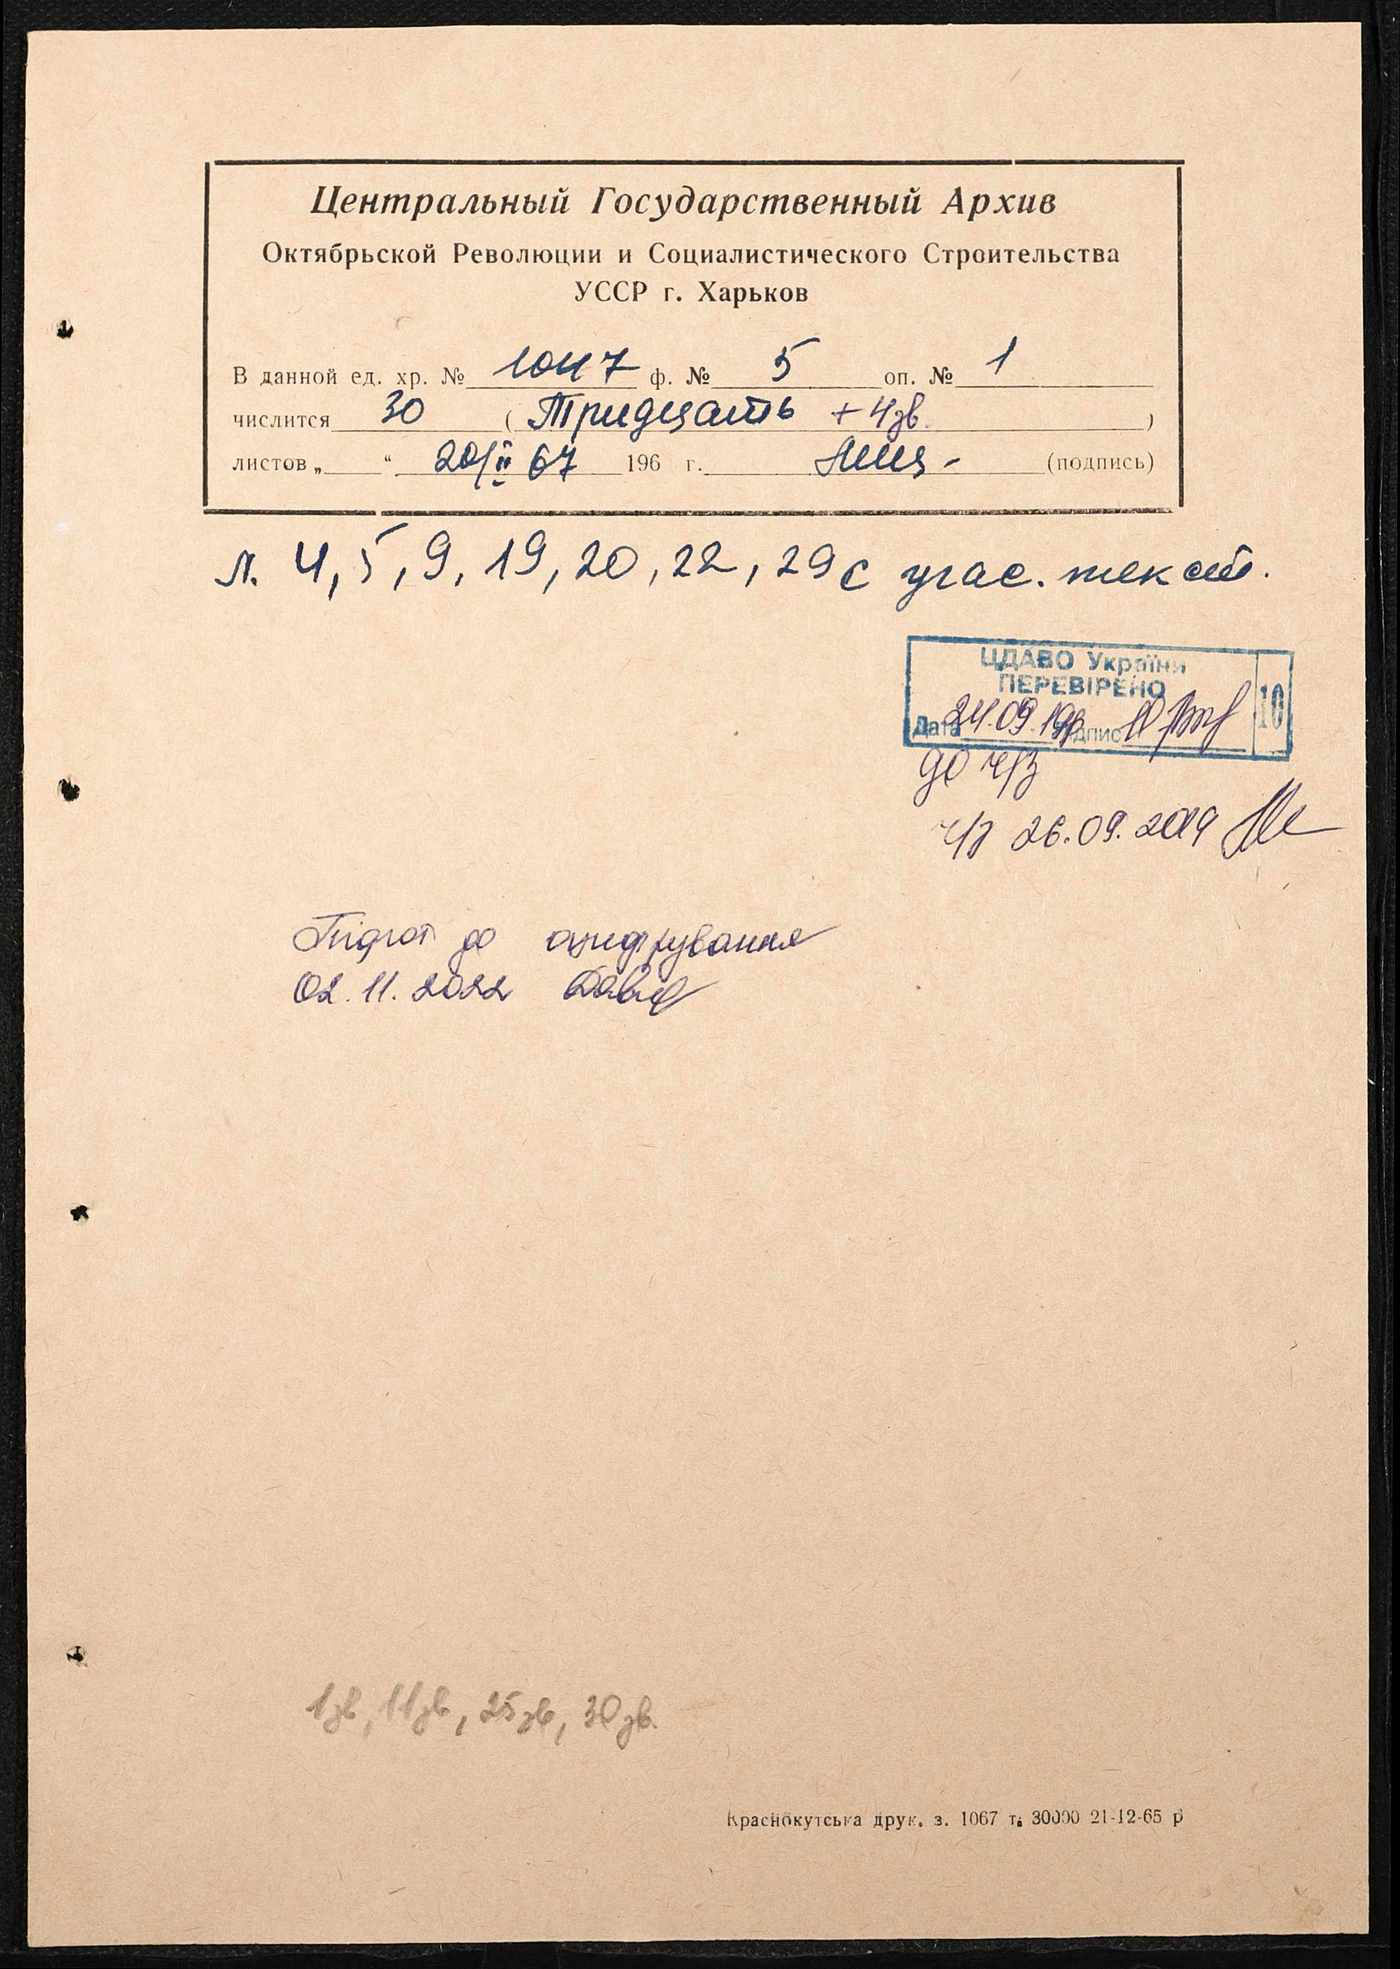 Центральный Государственный Архив
Октябрьской Революции и Социалистического Строительства
УССР г. Харьков
В данной ед. хр. № 1047 ф. № 5 оп. № 1
числится 30 ( Тридцать + 4зв. )
листов „ “ 20/II 67 196 г. (подпись)
л. 4, 5, 9, 19, 20, 22, 29 с угас. текст.
ЦДАВО України
ПЕРЕВІРЕНО
10
Дата 24.09.19р Підпис
до ч/з
ч/з 26.09.2019
Підгот до оцифрування
02.11.2022
1зв, 11зв, 25зв, 30зв.
Краснокутська друк. з. 1067 т. 30000 21-12-65 р